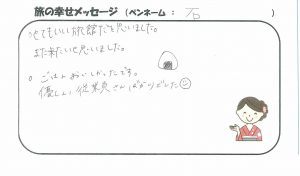 旅の幸せメッセージ (ペンネーム : 石 )
とてもいい旅館だと思いました。
また来たいと思いました。
○ ごはんおいしかったです。
優しい従業員さんばかりでした